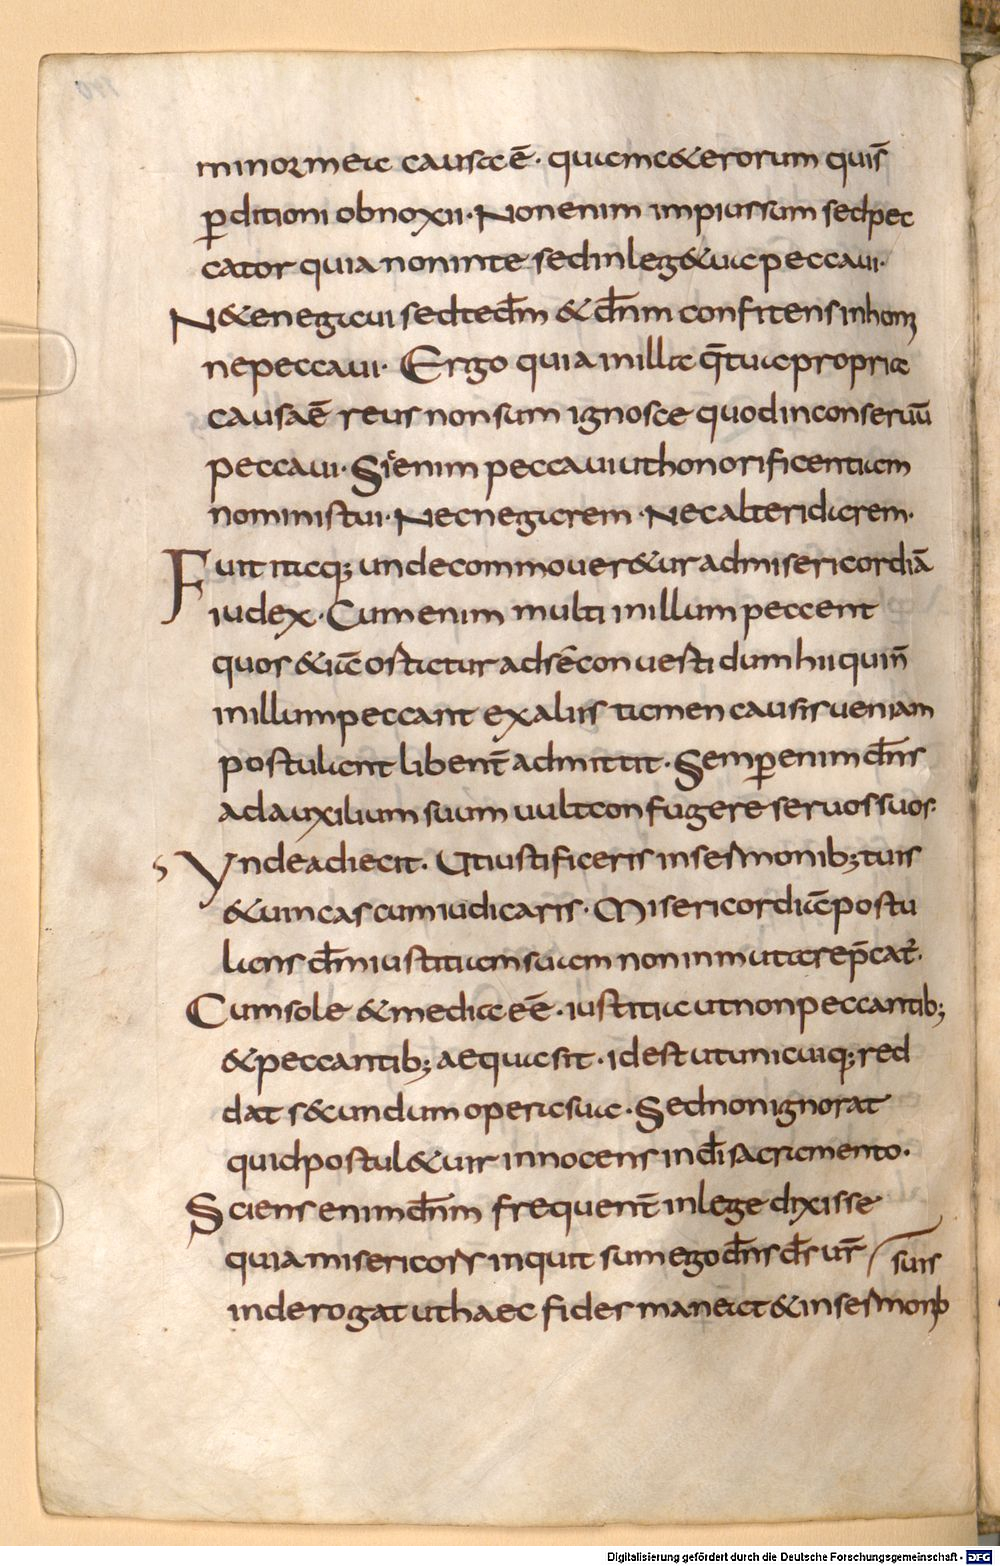 minor mea causa ē· quam cęterorum qui s̄
p̄ditioni obnoxii· Non enim impius sum sed pec
cator quia non in te sed in lege tua peccaui·
Nete negaui sed te dm̄ & dn̄m confitens in hom
ne peccaui· Ergo quia in illa q̄ tuae propriae
causa ē reus non sum ignosce quod in conseruū
peccaui· Sic enim peccaui ut honorificentiam
nominis tui· Nec negarem· Nec alteri darem·
Fuit itaq; unde commoueretur ad misericordiā
iudex· Cum enim multi in illum peccent
quos & iā ostatur ad se conuersti dum hii qui n̄
in illum peccant ex aliis tamen causis ueniam
postulent libent̄ admittit· Semp̄ enim dn̄s
ad auxilium suum uult confugere seruos suos·
Vnde adiecit· Ut iustificeris in sermonib; tuis
& uincas cum iudicaris· Misericordiā postu
lans dm̄ iustitiam suam non inmutare p̄cat̄·
Cum sole & media eē· iustitia ut non peccantib;
& peccantib; aequa sit· id est ut unicuiq; red
dat secundum opera sua· Sed non ignorat
quid postul& uir innocens in dī sacramento·
Sciens enim dn̄m frequent̄ in lege dixisse
quia misericors inquit sum ego dn̄s ds̄ ur̄
inde rogat ut haec fides maneat & in sermonib
suis